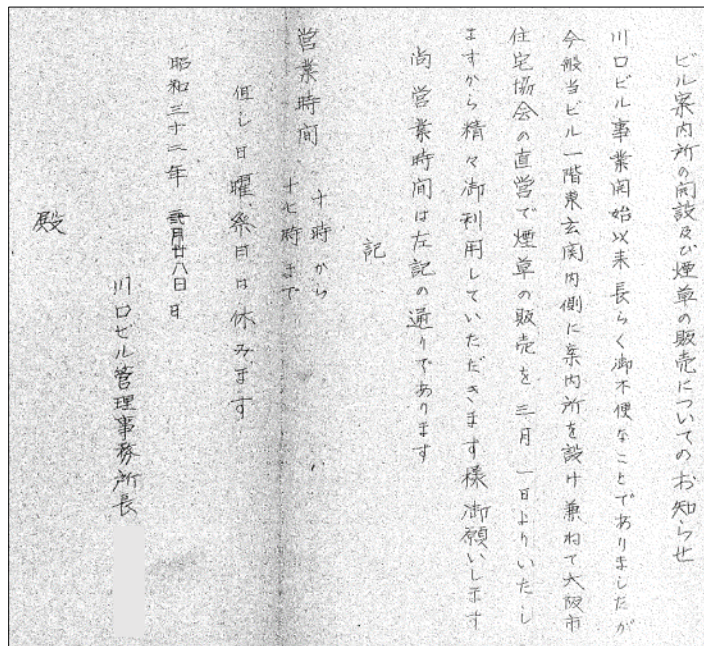 ビル案内所の開設及び煙草の販売についてのお知らせ
川口ビル事業開始以来長らく御不便なことでありましたが
今般当ビル一階東玄関内側に案内所を設け兼ねて大阪市
住宅協会の直営で煙草の販売を三月一日よりいたし
ますから精々御利用していただきます様御願いします
尚営業時間は左記の通りであります
記
営業時間 十時から
十七時まで
但し日曜、祭日は休みます
昭和三十二年弐月廿八日日
川口ビル管理事務所長
殿